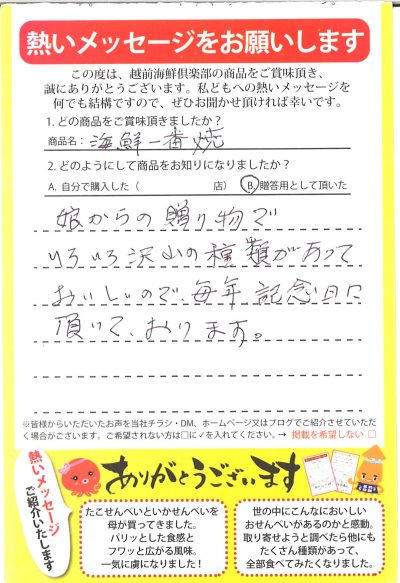 熱いメッセージをお願いします
この度は、越前海鮮倶楽部の商品をご賞味頂き、
誠にありがとうございます。私どもへの熱いメッセージを
何でも結構ですので、ぜひお聞かせ頂ければ幸いです。
1. どの商品をご賞味頂きましたか?
商品名: 海鮮一番焼
2. どのようにして商品をお知りになりましたか?
A. 自分で購入した( 店) B. 贈答用として頂いた
娘からの贈り物で
いろいろ沢山の種類があって
おいしいので、毎年記念日に
頂いて、おります。
※皆様からいただいたお声を当社チラシ・DM、ホームページ又はブログでご紹介させていただ
く場合がございます。ご希望されない方は□に✓を入れてください。→ 掲載を希望しない □
熱いメッセージ
ご紹介いたします
ありがとうございます
たこせんべいといかせんべいを
母が買ってきました。
パリッとした食感と
フワッと広がる風味。
一気に虜になりました!
世の中にこんなにおいしい
おせんべいがあるのかと感動。
取り寄せようと調べたら他にも
たくさん種類があって、
全部食べてみたくなりました。